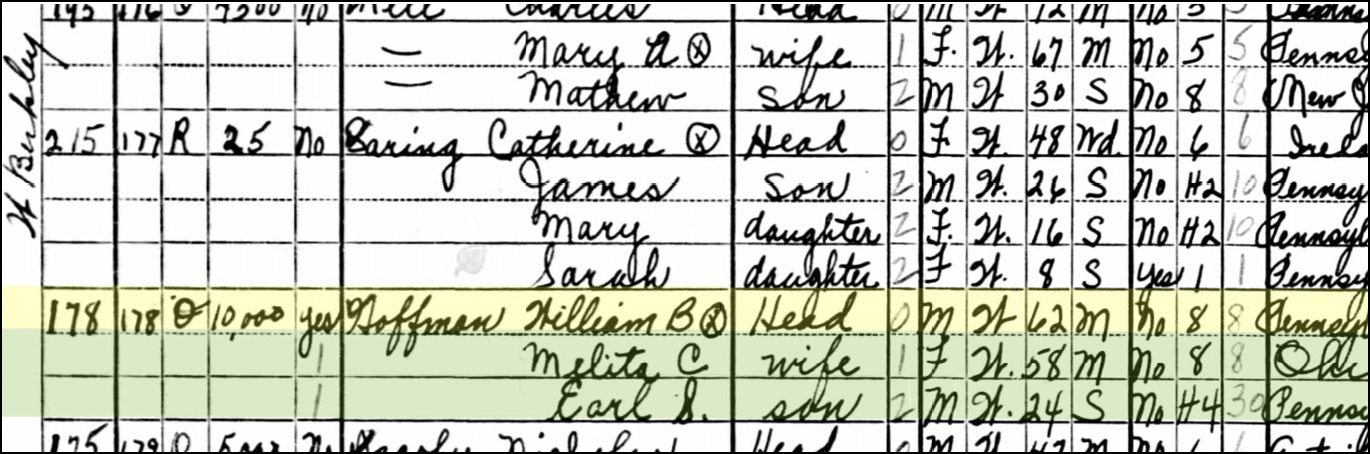 W Berkley
193 176 O 7500 No Charles Head 0 M W 72 M No 5 5
— Mary A Ⓧ wife 1 F. W. 67 M No 5 5 Pennsy
— Mathew son 2 M W 30 S No 8 8 New J
215 177 R 25 No Catherine Ⓧ Head 0 F W. 48 Wd. No 6 6 Irela
James son 2 M W. 26 S No H2 10 Pennsy
Mary daughter 2 F. W. 16 S No H2 10 Pennsyl
Sarah daughter 2 F W. 8 S yes 1 1 Pennsy
178 178 O 10,000 yes Hoffman William B Ⓧ Head 0 M W 62 M No 8 8 Pennsyl
1 Melita C wife 1 F W. 58 M No 8 8 Ohi
1 Earl S. son 2 M W. 24 S No H4 30 Penns
175 179 O No Head M W. M